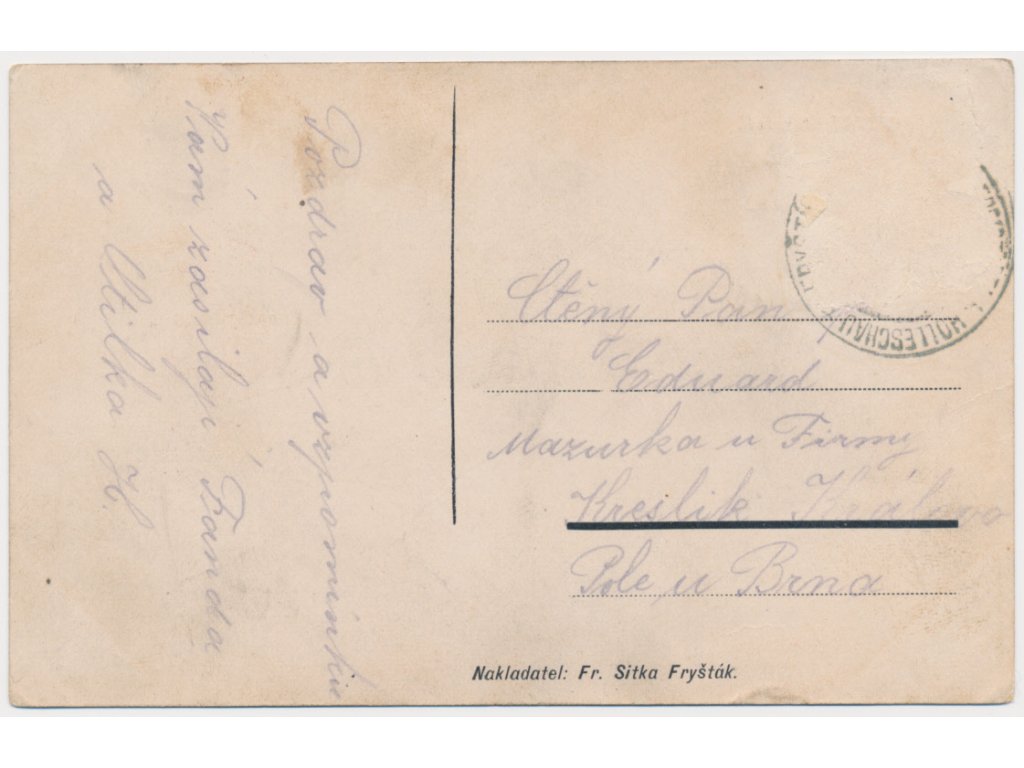 Pozdrav a vzpomínku
Vám zasilají Fanda
a Milka H.
Ctěný Pan
Eduard
Mazurka u Firmy
Kreslik Královo
Pole u Brna
HOLLESCHAU
Nakladatel: Fr. Sitka Fryšták.